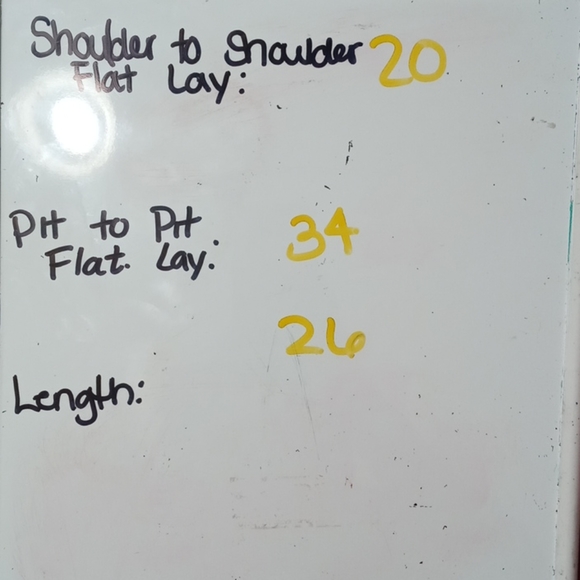 Shoulder to Shoulder 20
Flat Lay:
Pit to Pit 34
Flat. Lay:
26
Length: